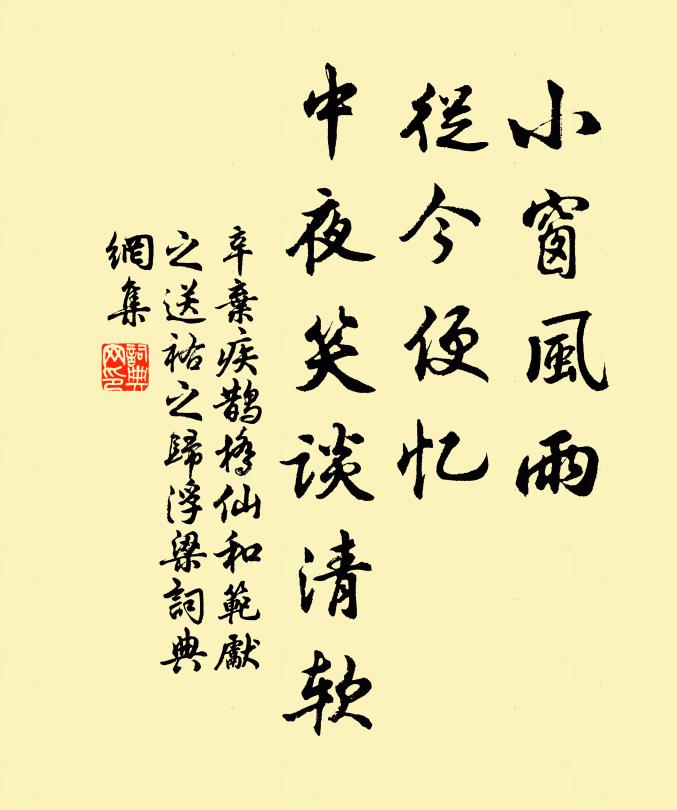 小窗風雨
從今便忆
中夜笑談清軟
辛棄疾鵲橋仙和範獻
之送祐之歸浮梁詞典
網集
詞典網印